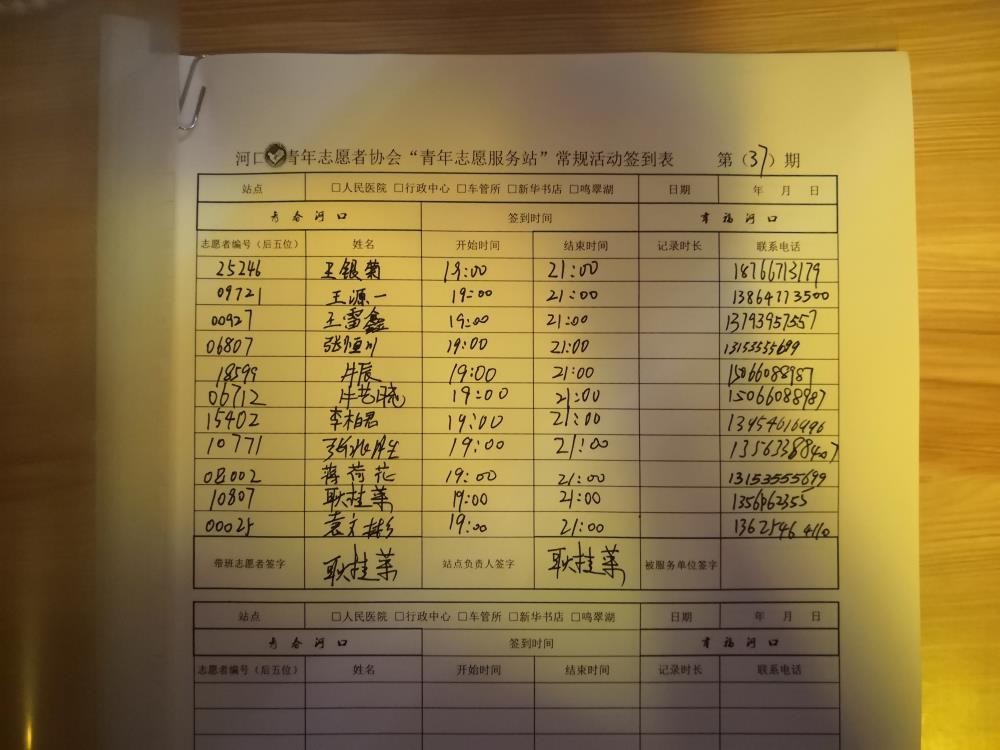 河口青年志愿者协会“青年志愿服务站”常规活动签到表 第（37）期
站点 □人民医院 □行政中心 □车管所 □新华书店 □鸣翠湖 日期 年 月 日
青春河口 签到时间 幸福河口
志愿者编号（后五位） 姓名 开始时间 结束时间 记录时长 联系电话
25246 王银菊 19:00 21:00 18766713179
09721 王源一 19:00 21:00 13864773500
00927 王雷鑫 19:00 21:00 13793957557
06807 张恒川 19:00 21:00 13153555699
18599 牛辰 19:00 21:00 15066088987
06712 牛艺晓 19:00 21:00 15066088987
15402 李柏君 19:00 21:00 13454616996
10771 19:00 21:00 13563388407
08002 薄荷花 19:00 21:00 13153555699
10807 耿桂莱 19:00 21:00 1356462355
00025 袁文彬 19:00 21:00 13625464110
带班志愿者签字 耿桂莱 站点负责人签字 耿桂莱 被服务单位签字
站点 □人民医院 □行政中心 □车管所 □新华书店 □鸣翠湖 日期 年 月 日
青春河口 签到时间 幸福河口
志愿者编号（后五位） 姓名 开始时间 结束时间 记录时长 联系电话